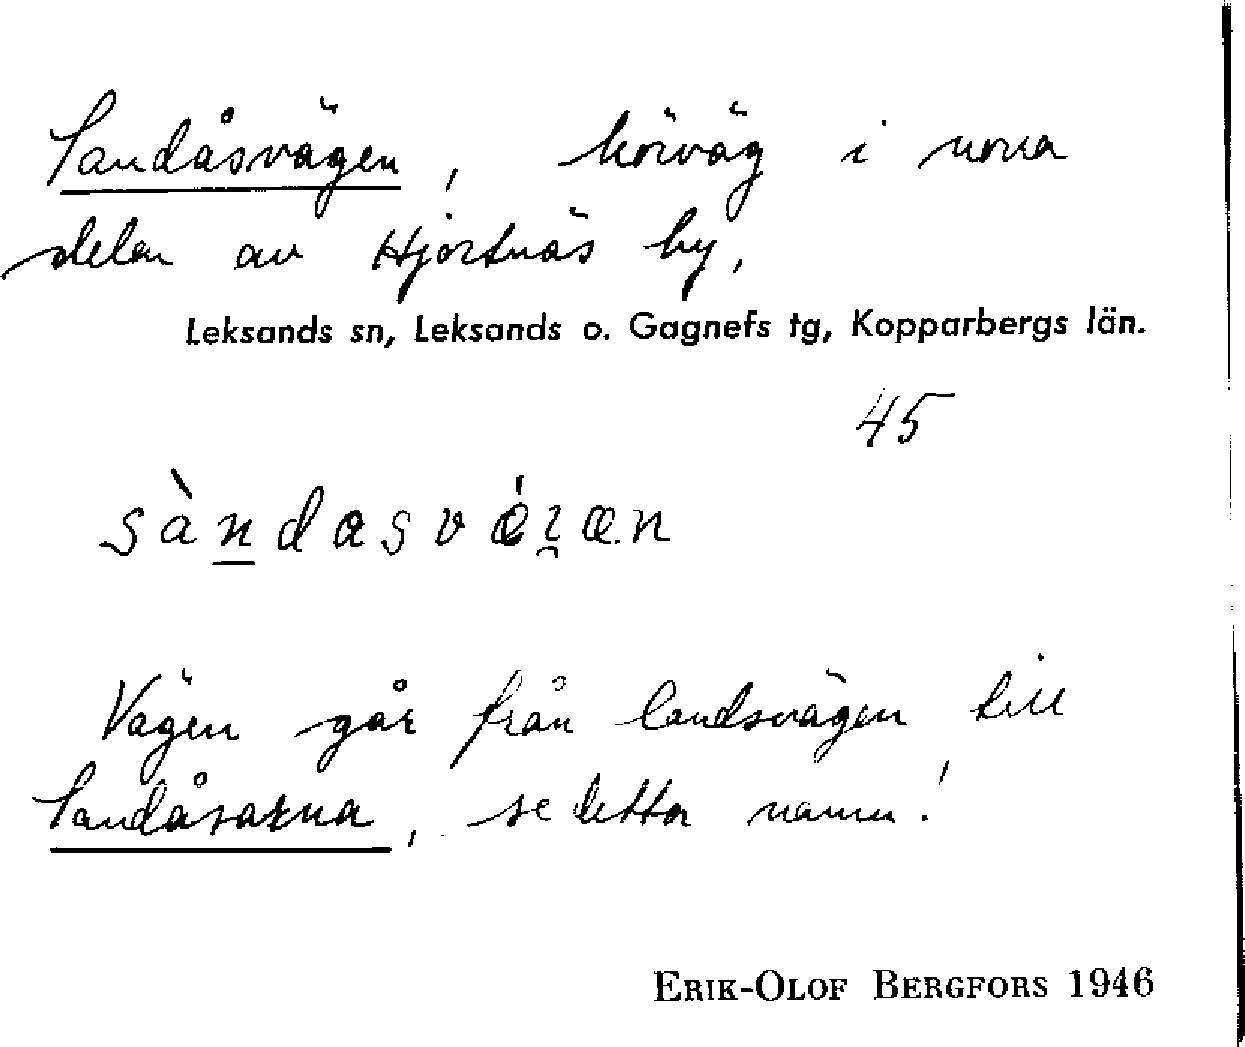 Sandåsvägen, körväg i norra
delen av Hjortnäs by,
Leksands sn, Leksands o. Gagnefs tg, Kopparbergs län.
45
sàndasvé̜ɀæn
Vägen går från landsvägen till
Sandåsarna, se detta namn!
ERIK-OLOF BERGFORS 1946